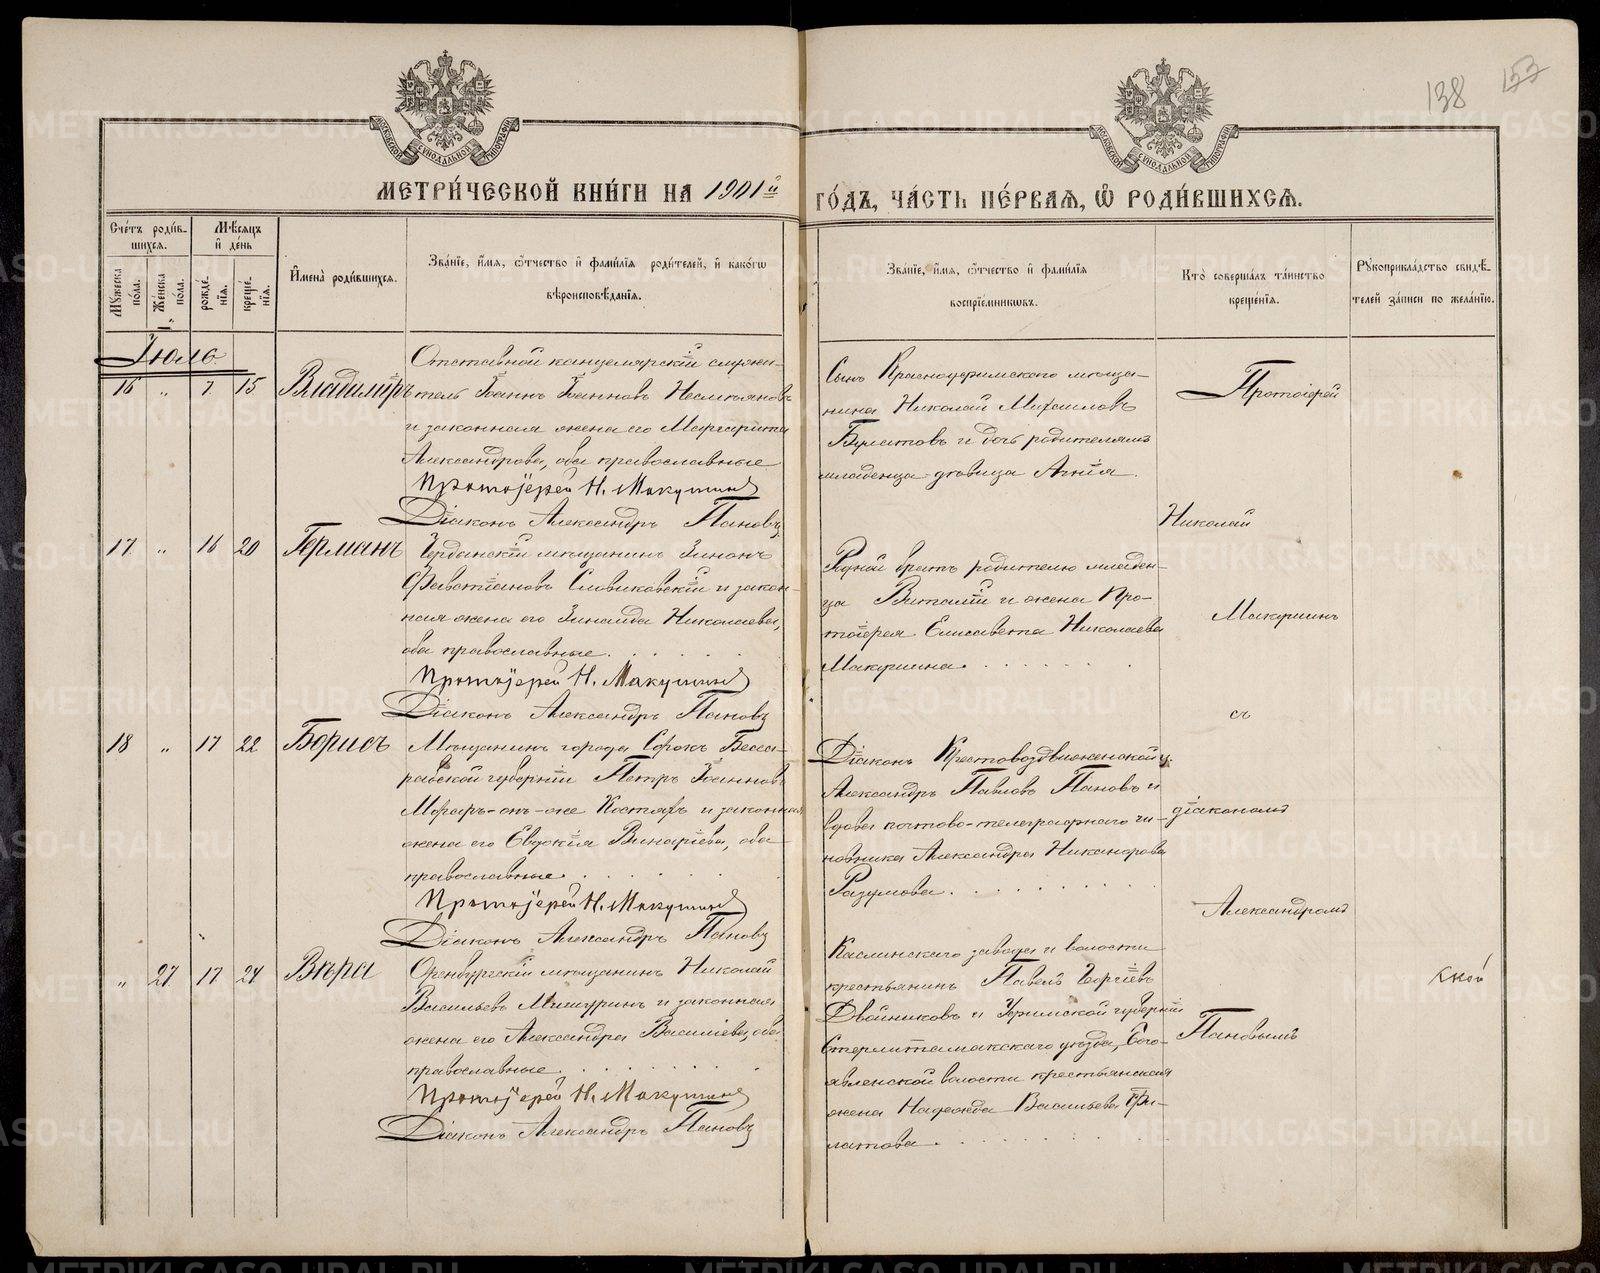 138 153
МОСКОВСКОЙ СУНОДАЛЬНОЙ ТИПОГРАФІИ
МОСКОВСКОЙ СУНОДАЛЬНОЙ ТИПОГРАФІИ
МЕТРИ́ЧЕСКОЙ КНИ́ГИ НА 1901й ГО́ДЪ, ЧА́СТЬ ПЕ́РВАѦ, Ѽ РОДИ́ВШИХСѦ.
Сче́тъ роди́в-
шихся.
Мѣ́сяцъ
и҆ де́нь
Мꙋ́жеска по́ла.
Же́нска по́ла.
рожде́нїя.
креще́нїя.
И҆мена̀ роди́вшихся.
Зва́нїе, и҆́мя, ѻ҆́тчество и҆ фами́лїя роди́телей, и҆ како́гѡ
вѣроисповѣ́данїя.
Зва́нїе, и҆́мя, ѻ҆́тчество и҆ фами́лїя
воспрїе́мникѡвъ.
Кто̀ соверша́лъ та́инство
креще́нїя.
Рꙋкоприкла́дство свидѣ́-
телей за́писи по жела́нїю.
Іюль
16 „ 7 15 Владиміръ
Отставной канцелярскій служи-
тель Іоаннъ Іоанновъ Несмѣяновъ
и законная жена его Маргарита
Александрова, оба православные
Протоіерей Н. Макушинъ
Діаконъ Александръ Пановъ
Сынъ Красноуфимскаго мѣща-
нина Николай Михаиловъ
Булатовъ и дочь родителямъ
младенца девица Агнія.
17 „ 16 20 Германъ
Чердынскій мѣщанинъ Зинонъ
Фавстіановъ Словиковскій и закон-
ная жена его Зинаида Николаева,
оба православные.
Протоіерей Н. Макушинъ
Діаконъ Александръ Пановъ
Родной братъ родителю младен-
ца Виталій и жена Про-
тоіерея Елисавета Николаева
Макушина.
18 „ 17 22 Борисъ
Мѣщанинъ города Сорокъ Бесса-
рабской губерніи Петръ Іоанновъ
и законная
жена его Евдокія Винаріева, оба
православные.
Протоіерей Н. Макушинъ
Діаконъ Александръ Пановъ
Діаконъ Крестовоздвиженской ц.
Александръ Павловъ Пановъ и
вдова почтово-телеграфнаго чи-
новника Александра Никанорова
Разумова.
„ 27 17 24 Вѣра
Оренбургскій мѣщанинъ Николай
Васильевъ Мишуринъ и законная
жена его Александра Василіева, оба
православные.
Протоіерей Н. Макушинъ
Діаконъ Александръ Пановъ
Каслинскаго завода и волости
крестьянинъ Павелъ Георгіевъ
Двойниковъ и Уфимской губерніи
Стерлитамакскаго уѣзда, Бого-
явленской волости крестьянская
жена Надежда Васильева Фи-
латова.
Протоіерей
Николай
Макушинъ
съ
діакономъ
Александромъ
Пановымъ
METRIKI.GASO-URAL.RU